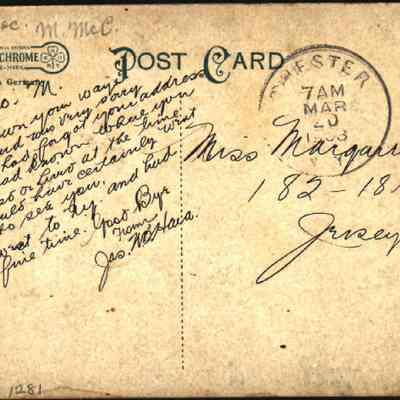 M. McC.
CHROME
Germany
POST CARD
CHESTER
7 AM
MAR
20
M.
down your way
and was very sorry
I had forgot your address
had known where you
or lived at the time
would have certainly went
to see you. and had
went to Ny. and had
fine time. Good Bye
from
Jas.
Miss Margar
182-18
Jersey
1281